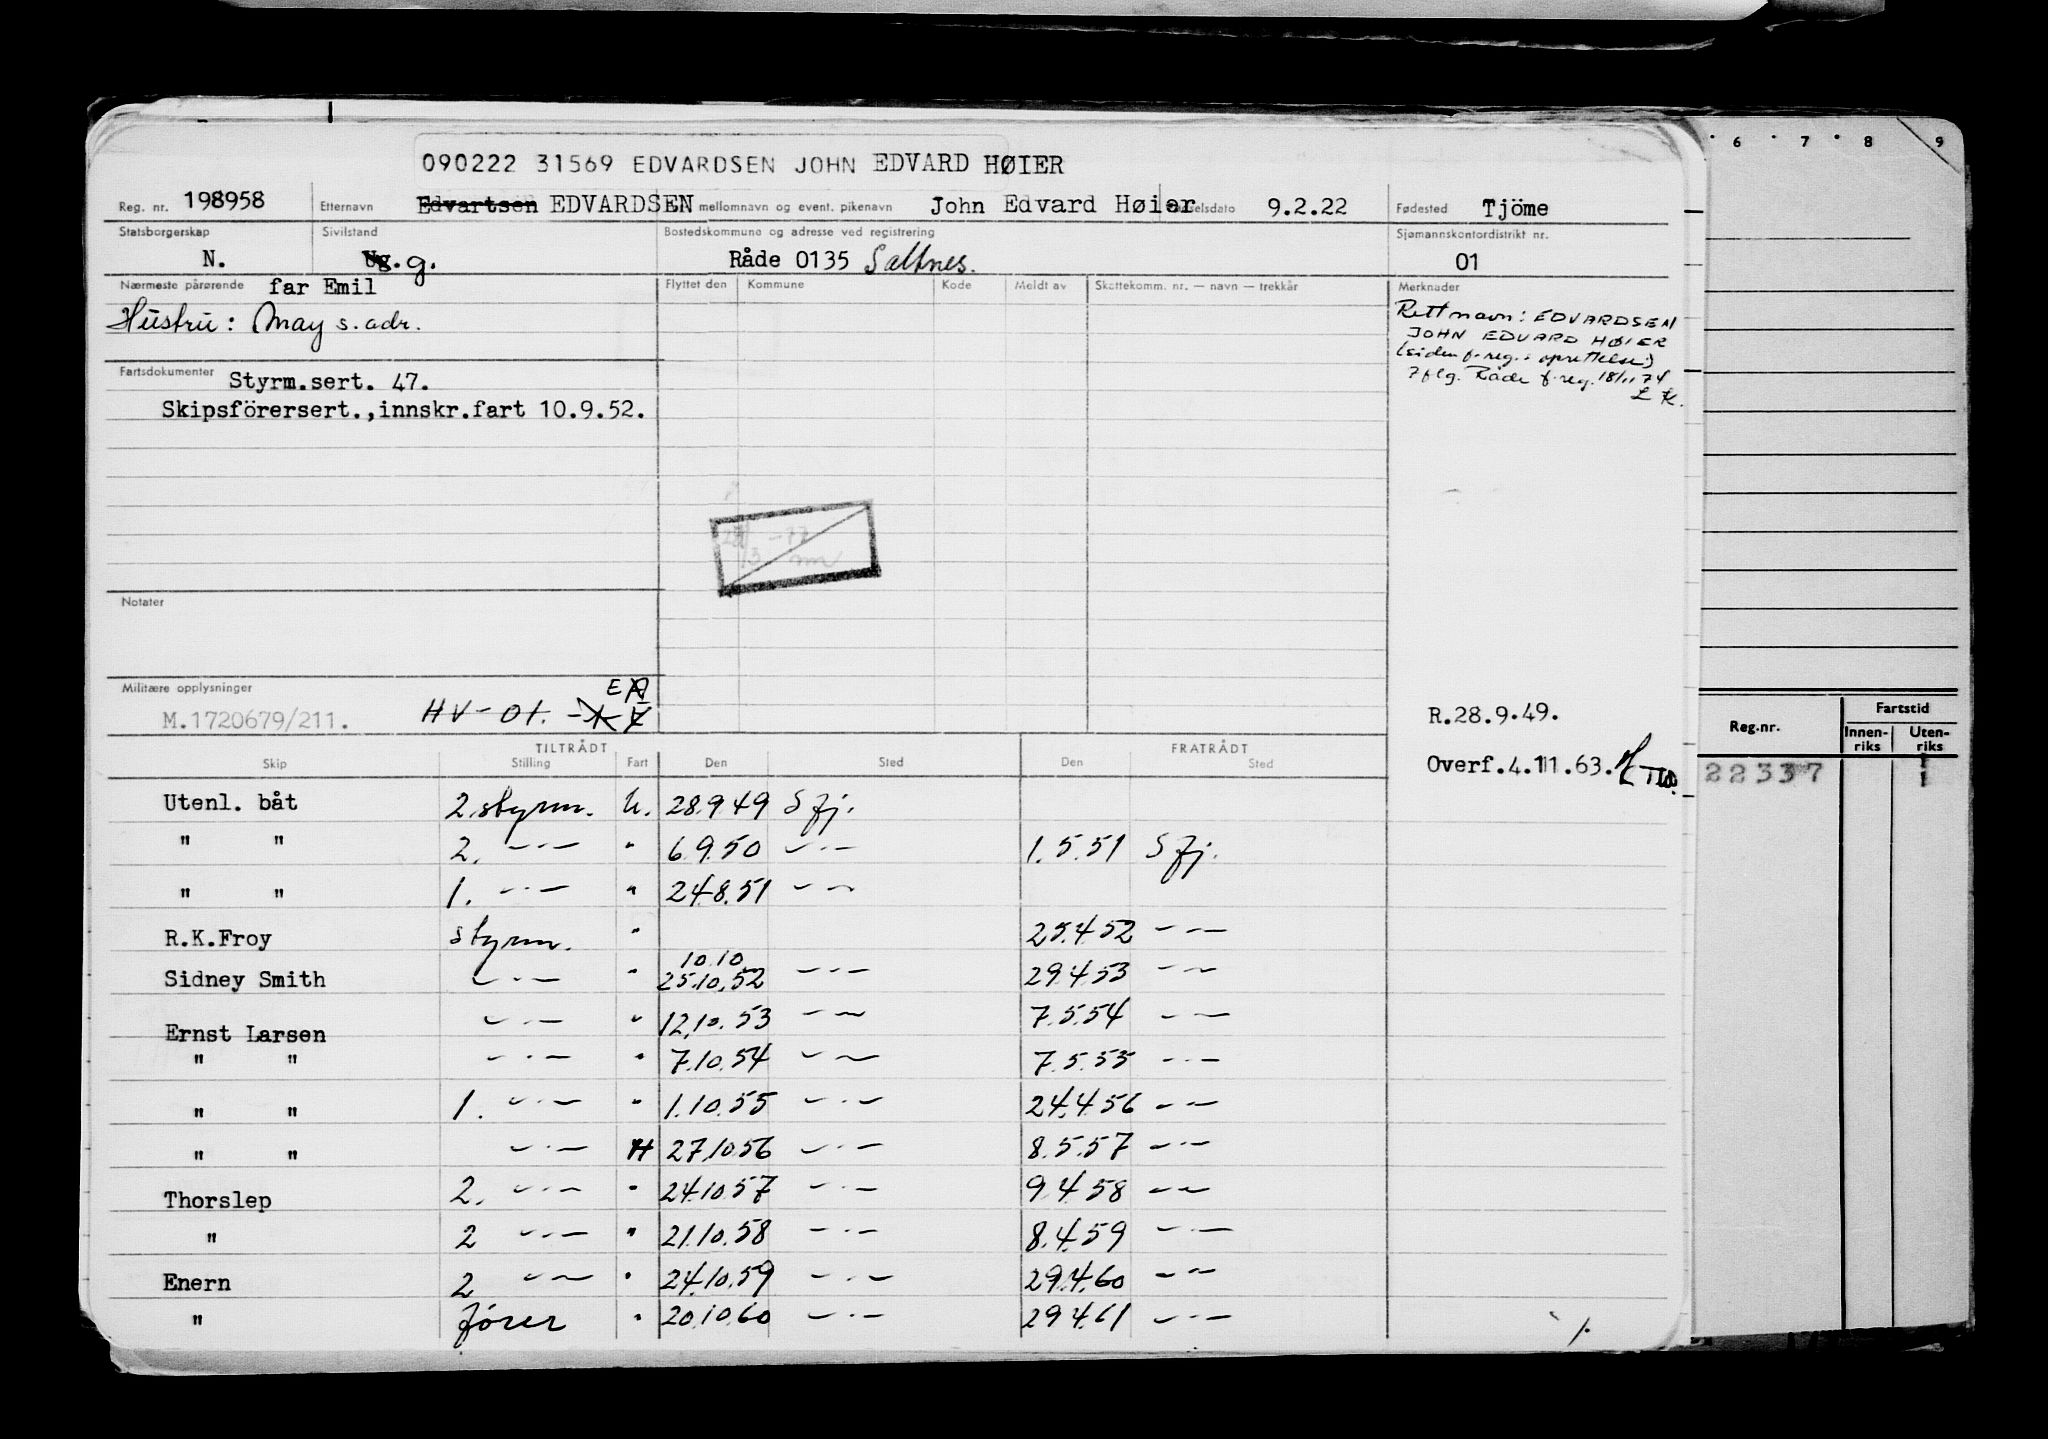 6 7 8 9
090222 31569 EDVARDSEN JOHN EDVARD HØIER
Reg. nr. 198958 Etternavn Edvartsen EDVARDSEN mellomnavn og event. pikenavn John Edvard Høier 9.2.22 Fødested Tjöme
Statsborgerskap Sivilstand Bostedskommune og adresse ved registrering Sjømannskontordistrikt nr.
N. Ug. g. Råde 0135 Saltnes. 01
Nærmeste pårørende far Emil Flyttet den Kommune Kode Meldt av Skattekomm. nr. — navn — trekkår Merknader
Hustru: May s. adr.
Rett navn: EDVARDSEN
JOHN EDVARD HØIER
(siden f.reg.s oprettelse)
iflg. Råde f.reg. 18/11 74
Fartsdokumenter Styrm.sert. 47.
Skipsförersert.,innskr.fart 10.9.52.
Notater
Militære opplysninger
M.1720679/211. HV-01.
R.28.9.49.
Overf.4.11.63.
Reg.nr. Fartstid
Innen-riks Uten-riks
22337
TILTRÅDT FRATRÅDT
Skip Stilling Fart Den Sted Den Sted
Utenl. båt 2.styrm. U. 28.9.49 S fj.
" " 2. —·— " 6.9.50 —·— 1.5.51 S fj.
" " 1. —·— " 24.8.51 —·—
R.K.Froy styrm. " 25.4.52 —·—
10.10
Sidney Smith —·— " 25.10.52 —·— 29.4.53 —·—
Ernst Larsen —·— " 12.10.53 —·— 7.5.54 —·—
" " —·— " 7.10.54 —·— 7.5.55 —·—
" " 1. —·— " 1.10.55 —·— 24.4.56 —·—
" " —·— H 27.10.56 —·— 8.5.57 —·—
Thorslep 2. —·— " 24.10.57 —·— 9.4.58 —·—
" 2 —·— " 21.10.58 —·— 8.4.59 —·—
Enern 2 —·— " 24.10.59 —·— 29.4.60 —·—
" fører " 20.10.60 —·— 29.4.61 —·—